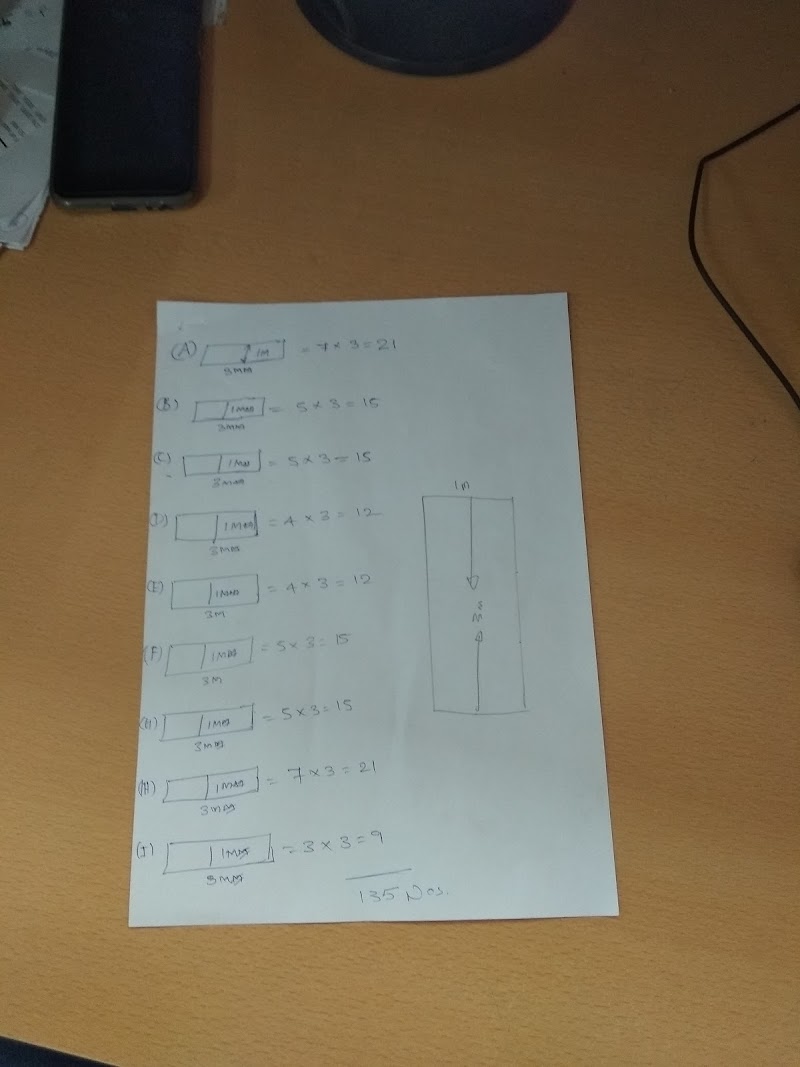 (A) 1M = 7 × 3 = 21
3MM
(B) 1MM = 5 × 3 = 15
3MM
(C) 1MM = 5 × 3 = 15
3MM
(D) 1MM = 4 × 3 = 12
3MM
(E) 1MM = 4 × 3 = 12
3M
(F) 1MM = 5 × 3 = 15
3M
(H) 1MM = 5 × 3 = 15
3MM
(H) 1MM = 7 × 3 = 21
3MM
(I) 1MM = 3 × 3 = 9
3MM
135 Nos.
1M
3M